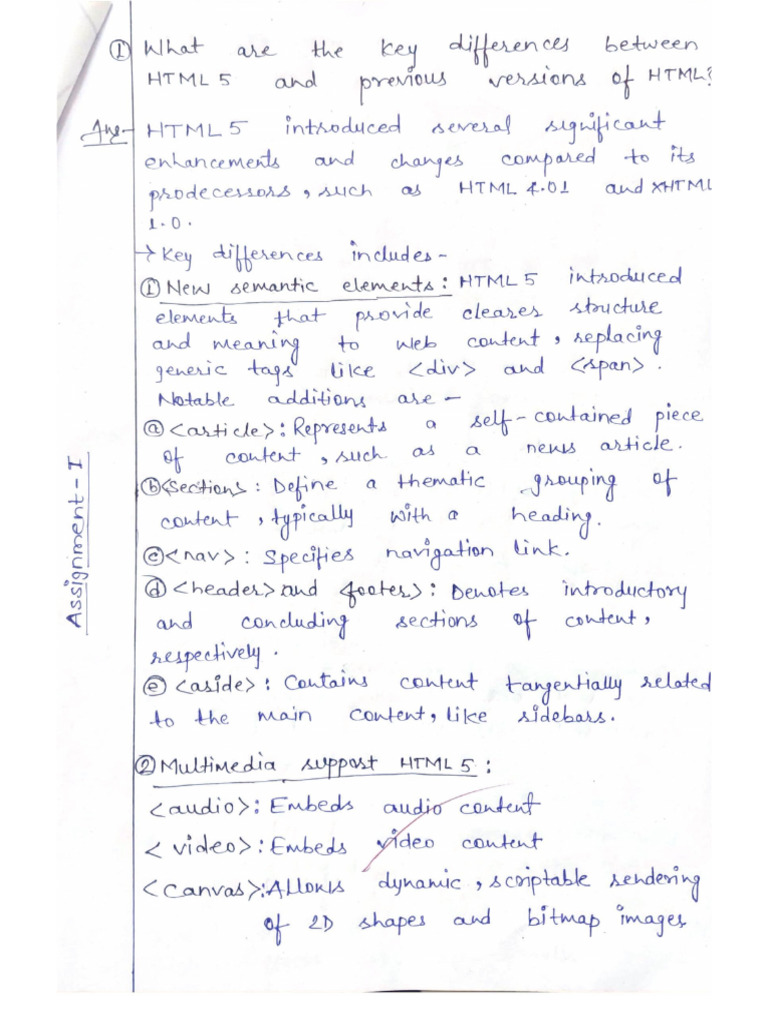 Assignment-I
① What are the key differences between
HTML 5 and previous versions of HTML?
Ans- HTML 5 introduced several significant
enhancements and changes compared to its
prodecessors, such as HTML 4.01 and XHTML
1.0.
→ Key differences includes-
① New semantic elements: HTML 5 introduced
elements that provide cleares structure
and meaning to web content, replacing
generic tags like <div> and <span>.
Notable additions are-
ⓐ <article>: Represents a self-contained piece
of content, such as a news article.
ⓑ <Sections: Define a thematic grouping of
content, typically with a heading.
ⓒ <nav>: Specifies navigation link.
ⓓ <header> and footer>: Denotes introductory
and concluding sections of content,
respectively.
ⓔ <aside>: Contains content tangentially related
to the main content, like sidebars.
② Multimedia support HTML 5:
<audio>: Embeds audio content
<video>: Embeds video content
<canvas>: Allows dynamic, scriptable rendering
of 2D shapes and bitmap images